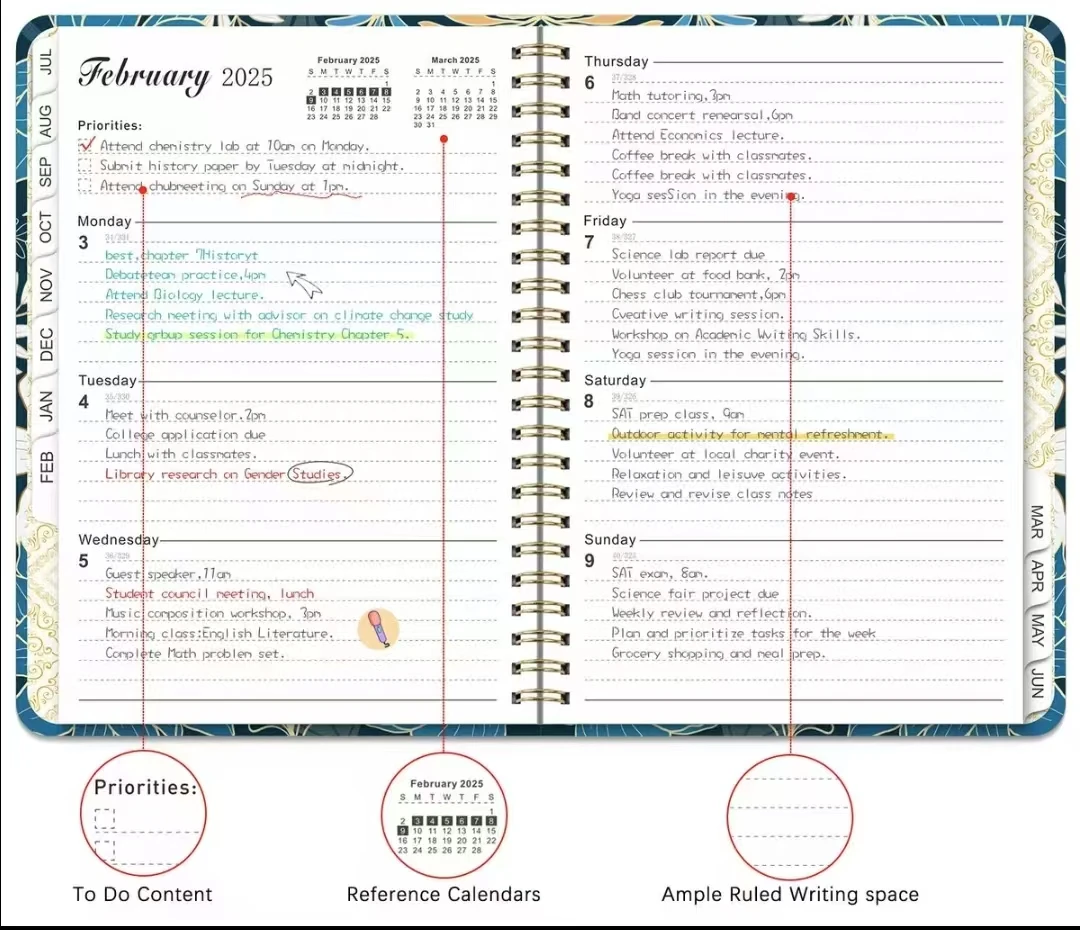 JUL
AUG
SEP
OCT
NOV
DEC
JAN
FEB
February 2025
February 2025
S M T W T F S
1
2 3 4 5 6 7 8
9 10 11 12 13 14 15
16 17 18 19 20 21 22
23 24 25 26 27 28
March 2025
S M T W T F S
1
2 3 4 5 6 7 8
9 10 11 12 13 14 15
16 17 18 19 20 21 22
23 24 25 26 27 28 29
30 31
Priorities:
Attend chemistry lab at 10am on Monday.
Submit history paper by Tuesday at midnight.
Attend chubmeeting on Sunday at 1pm.
Monday
3
best,chapter 7Historyt
Debateteam practice,4pm
Attend Biology lecture.
Research meeting with advisor on climate change study
Study grbup session for Chemistry Chapter 5.
Tuesday
4 35/330
Meet with counselor,2pm
College application due
Lunch with classmates.
Library research on Gender Studies.
Wednesday
5 36/329
Guest speaker,11am
Student council meeting, lunch
Music composition workshop, 3pm
Morning class:English Literature.
Complete Math problem set.
Thursday
6 37/328
Math tutoring,3pm
Band concert renearsal,6pm
Attend Economics lecture.
Coffee break with classmates.
Coffee break with classmates.
Yoga sesSion in the evening.
Friday
7 38/327
Science lab report due
Volunteer at food bank, 2pm
Chess club tournament,6pm
Cveative writing session.
Workshop on Academic Wviting Skills.
Yoga session in the evening.
Saturday
8 39/326
SAT prep class, 9am
Outdoor activity for mental refreshment.
Volunteer at local charity event.
Relaxation and leisuve activities.
Review and revise class notes
Sunday
9
SAT exam, 8am.
Science fair project due
Weekly review and reflection.
Plan and prioritize tasks for the week
Grocery shopping and meal prep.
MAR
APR
MAY
JUN
Priorities:
To Do Content
February 2025
S M T W T F S
1
2 3 4 5 6 7 8
9 10 11 12 13 14 15
16 17 18 19 20 21 22
23 24 25 26 27 28
Reference Calendars
Ample Ruled Writing space